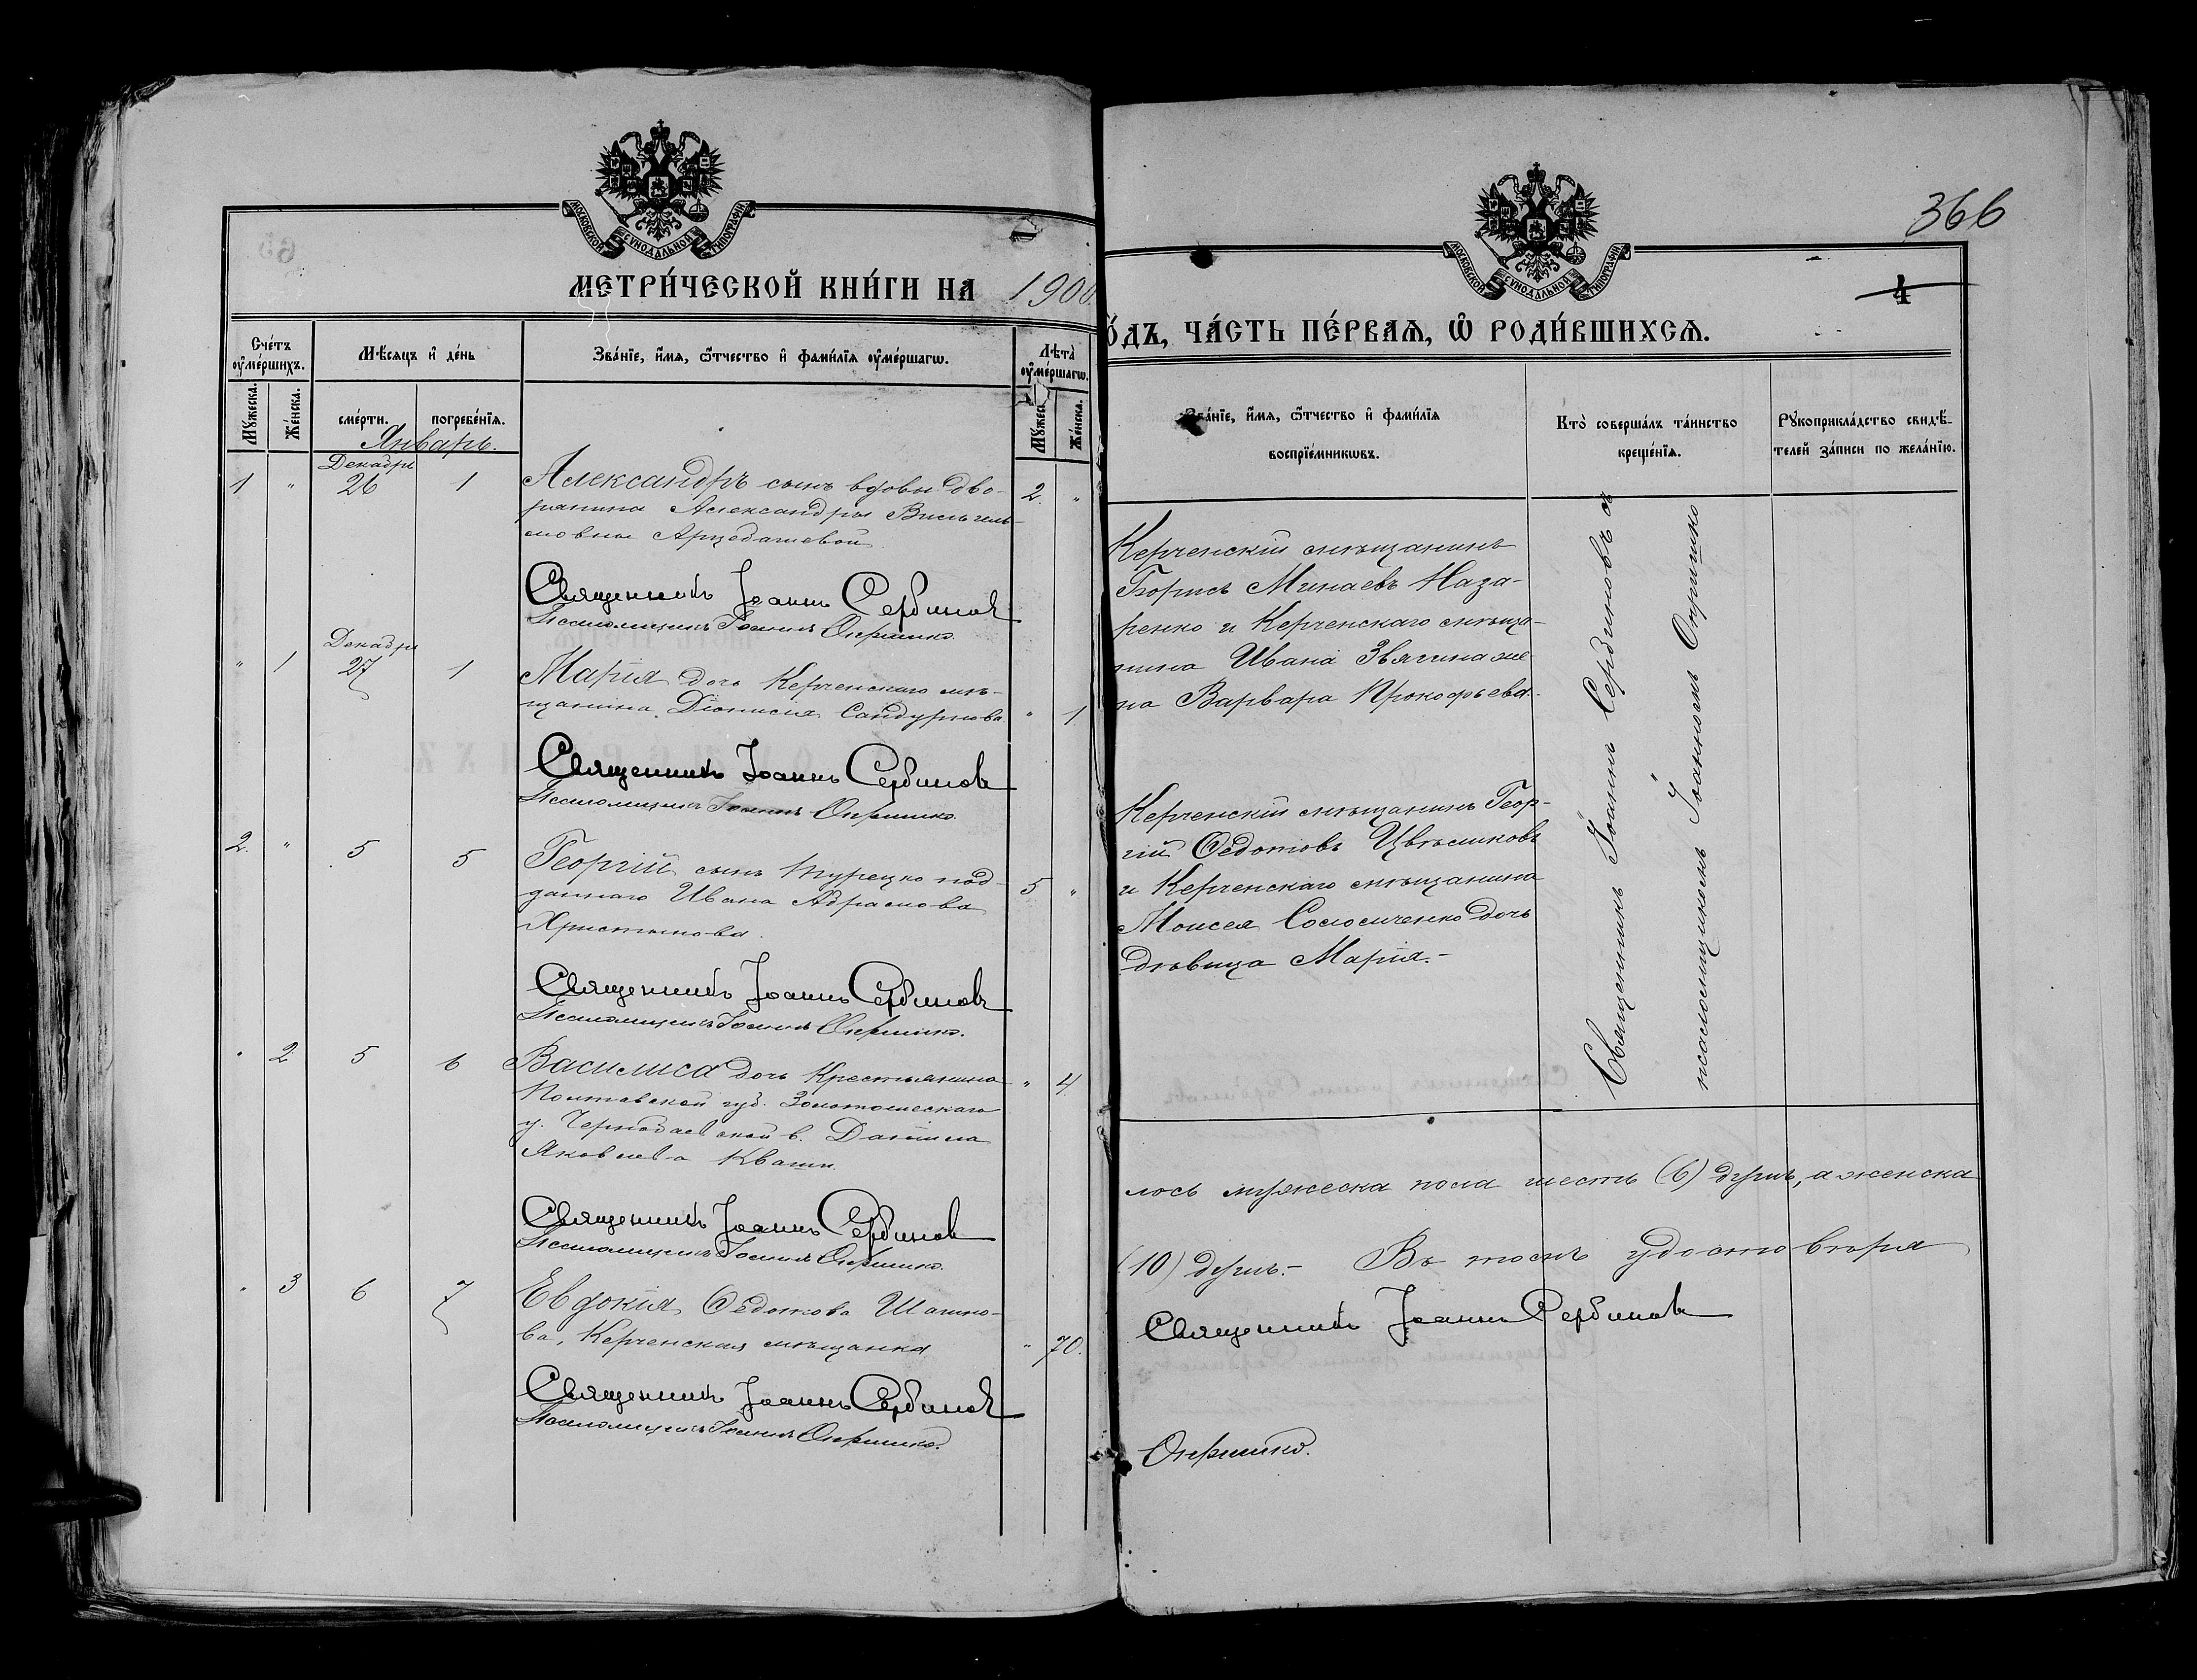 МОСКОВСКОЙ СѴНОДАЛЬНОЙ ТИПОГРАФІИ
МЕТРИ́ЧЕСКОЙ КНИ́ГИ НА 1900
Сче́тъ ᲂу҆ме́ршихъ.
Мѣ́сяцъ и҆ де́нь
Зва́нїе, и҆́мя, ѻ҆́тчество и҆ фами́лїя ᲂу҆ме́ршагѡ.
Лѣта̀ ᲂу҆ме́ршагѡ.
Мꙋ́жеска.
Же́нска.
сме́рти.
погребе́нїя.
Мꙋ́жеск
Же́нска.
Январь.
Декабря
1 " 26 1 Александръ сынъ вдовы дво-
рянина Александры Вильгель-
мовны Арцебашевой 2. "
Священникъ Іоаннъ Сербиновъ
Псаломщикъ Іоаннъ Онришко.
Декабря
" 1 27 1 Марія дочь Керченскаго мѣ-
щанина Діонисія " 1.
Священникъ Іоаннъ Сербиновъ
Псаломщикъ Іоаннъ Онришко.
2. " 5 5 Георгій сынъ турецко под-
даннаго Ивана 5 "
Священникъ Іоаннъ Сербиновъ
Псаломщикъ Іоаннъ Онришко.
" 2 5 6 Василиса дочь Крестьянина " 4.
Полтавской губ. Золотоношскаго
у. в. Даніила
Яковлева Кваши.
Священникъ Іоаннъ Сербиновъ
Псаломщикъ Іоаннъ Онришко.
" 3 6 7 Евдокія Федотова
ва, Керченская мѣщанка " 70.
Священникъ Іоаннъ Сербиновъ
Псаломщикъ Іоаннъ Онришко.
366
МОСКОВСКОЙ СѴНОДАЛЬНОЙ ТИПОГРАФІИ
4
О́ДЪ, ЧА́СТЬ ПЕ́РВАЯ, Ѡ҆ РОДИ́ВШИХСЯ.
Зва́нїе, и҆́мя, ѻ҆́тчество и҆ фами́лїя
воспрїе́мникѡвъ.
Кто̀ соверша́лъ та́инство
креще́нїя.
Рꙋкоприкла́дство свидѣ́-
телей за́писи по жела́нїю.
Керченскій мѣщанинъ
Борисъ Минаевъ Наза-
ренко и Керченскаго мѣща-
нина Ивана Звягина же-
на Варвара Прокофьева.
Керченскій мѣщанинъ Геор-
гій Федотовъ Цвѣтиковъ
и Керченскаго мѣщанина
Моисея дочь
дѣвица Марія.-
Священникъ Іоаннъ Сербиновъ съ
псаломщикомъ Іоанномъ Онришко
лось мужеска пола шесть (6) душъ, а женска
(10) душъ.- Въ томъ удостовѣряя
Священникъ Іоаннъ Сербиновъ
Онришко.